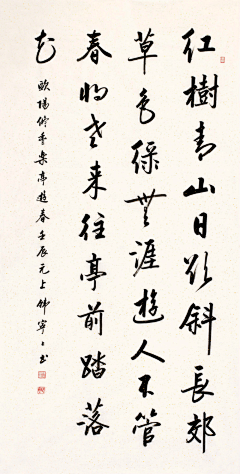 红樹青山日欲斜長郊
草色綠無涯遊人不管
春将老来往亭前踏落
花 歐陽修丰樂亭遊春壬辰元上韩寧〻书